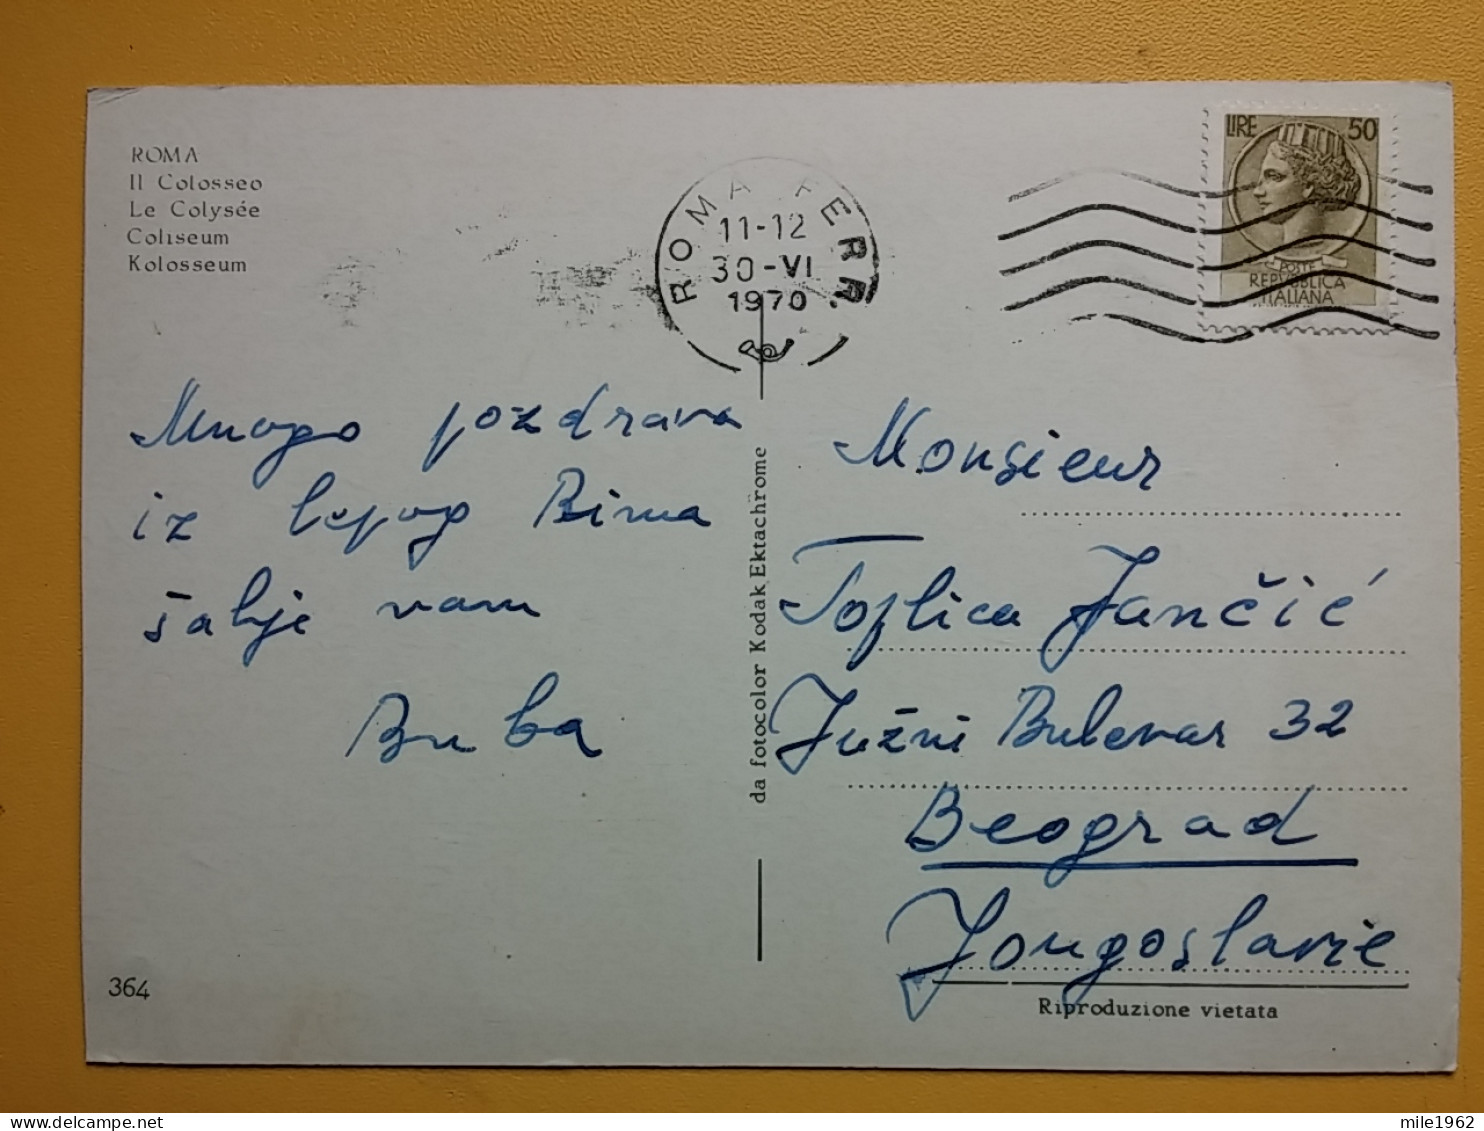 ROMA
Il Colosseo
Le Colysée
Coliseum
Kolosseum
ROMA FERR.
11-12
30-VI
1970
LIRE 50
POSTE
REPVBBLICA
ITALIANA
Mnogo pozdrava
iz lepog Rima
šalje vam
Buba
da fotocolor Kodak Ektachrome
Monsieur
Toplica Jančić
Južni Bulevar 32
Beograd
Jougoslavie
364
Riproduzione vietata
mile1962